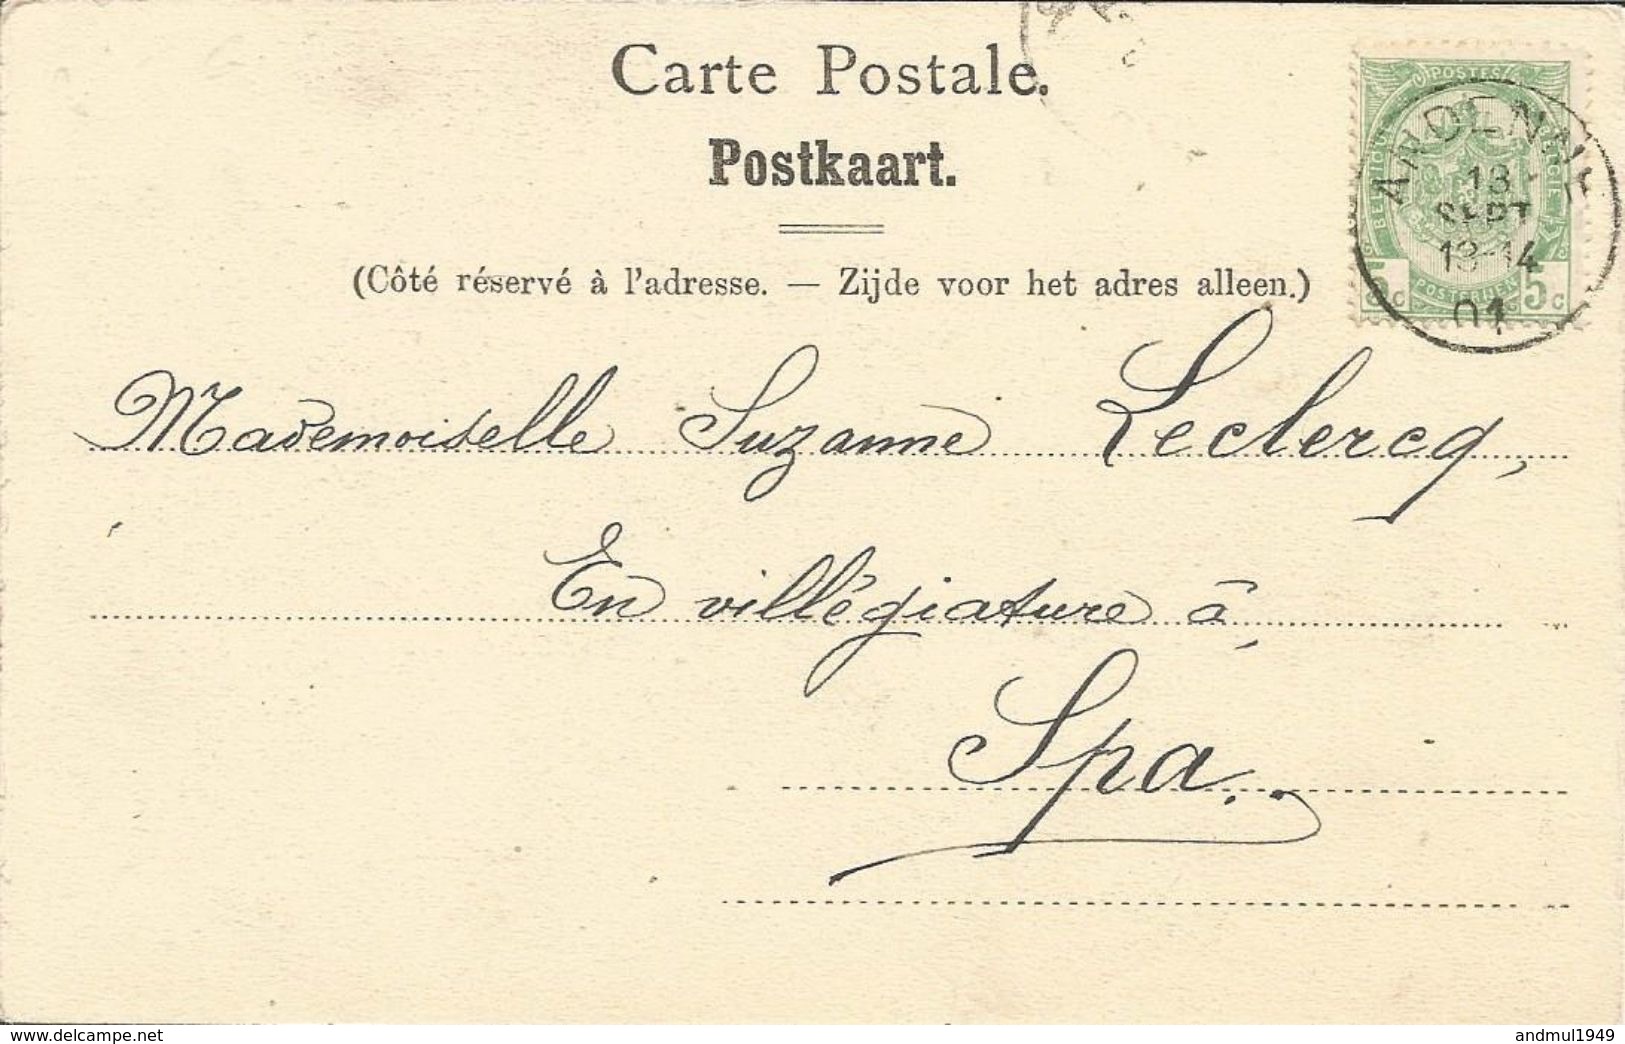 Carte Postale.
Postkaart.
(Côté réservé à l'adresse. — Zijde voor het adres alleen.)
POSTES
BELGIQUE
BELGIË
POSTERIJEN
5c 5c
ANDENNE
13
SEPT
13-14
01
Mademoiselle Suzanne Leclercq,
En villégiature à,
Spa.
www.delcampe.net
andmul1949